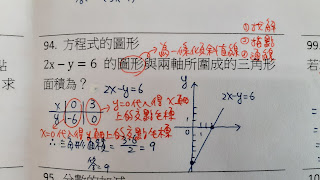 ①找解
②描點
③連線
94. 方程式的圖形
為一條傾斜直線
2x－y＝6 的圖形與兩軸所圍成的三角形
面積為？
2x-y=6
y
2x-y=6
x 0 3
y -6 0
y=0代入得x軸上的交點坐標
x=0代入得y軸上的交點坐標
∴三角形面積= 3×6/2 = 9
答=9
95. 分數的加減
求
99.
若